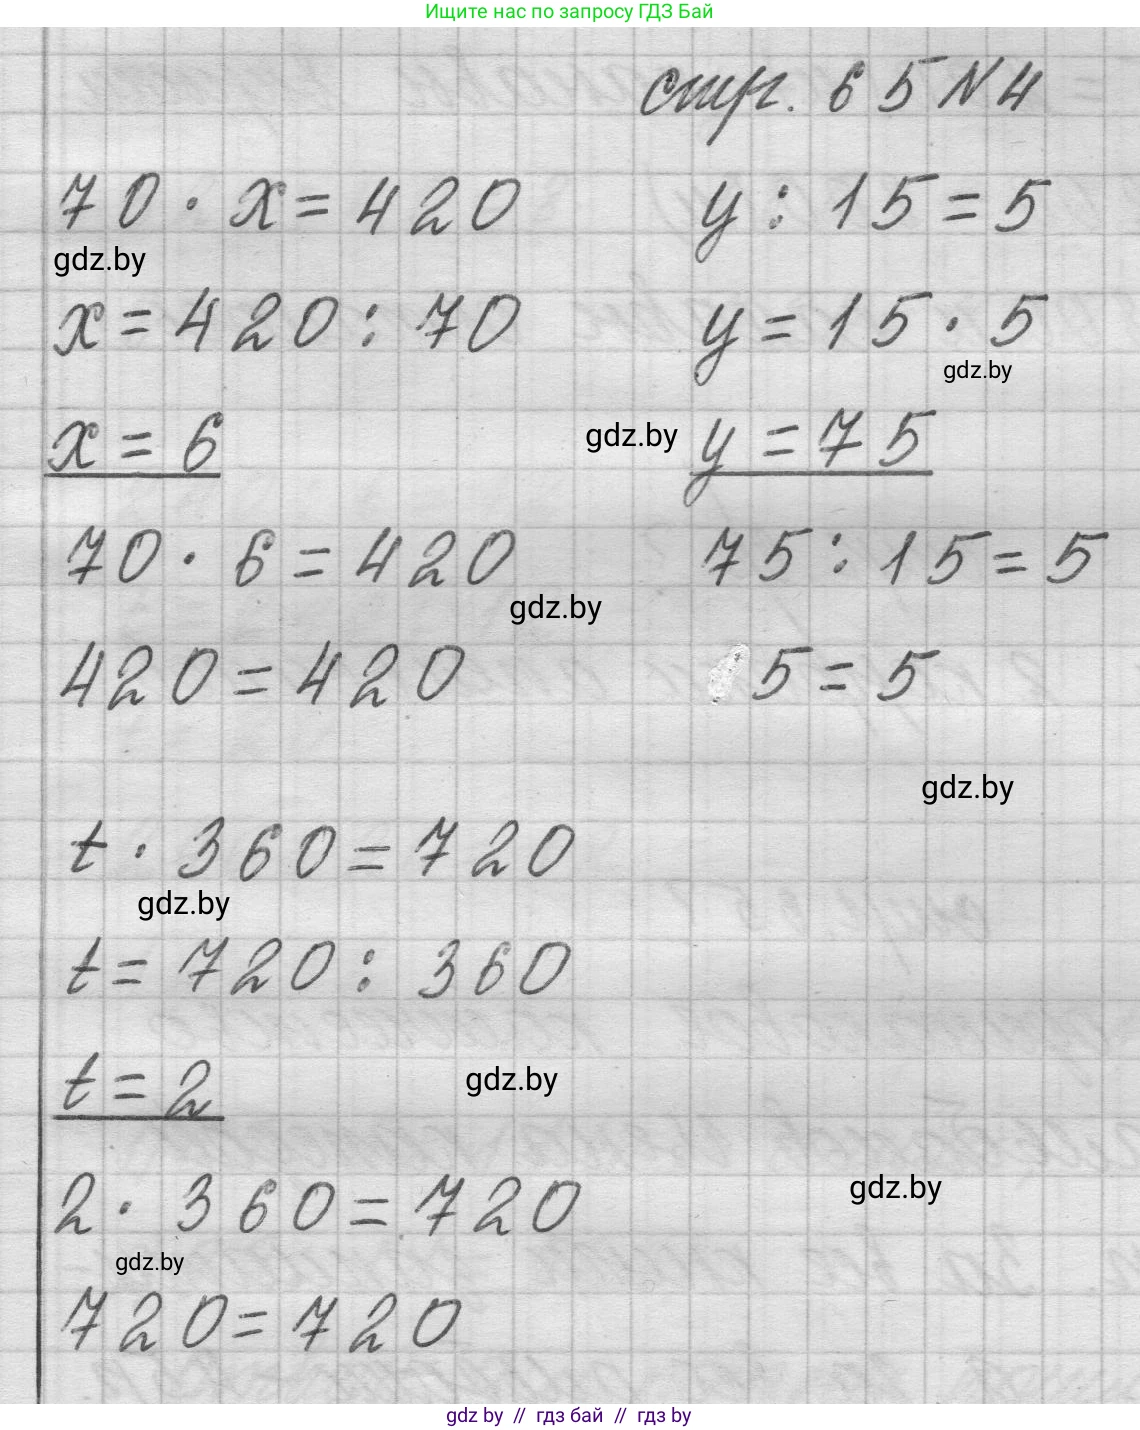 Ищите нас по запросу ГДЗ Бай
стр. 65 N4
70 · x = 420
y : 15 = 5
gdz.by
x = 420 : 70
y = 15 · 5
gdz.by
x = 6
gdz.by
y = 75
70 · 6 = 420
75 : 15 = 5
gdz.by
420 = 420
5 = 5
gdz.by
t · 360 = 720
gdz.by
t = 720 : 360
t = 2
gdz.by
2 · 360 = 720
gdz.by
gdz.by
720 = 720
gdz by // гдз бай // гдз by